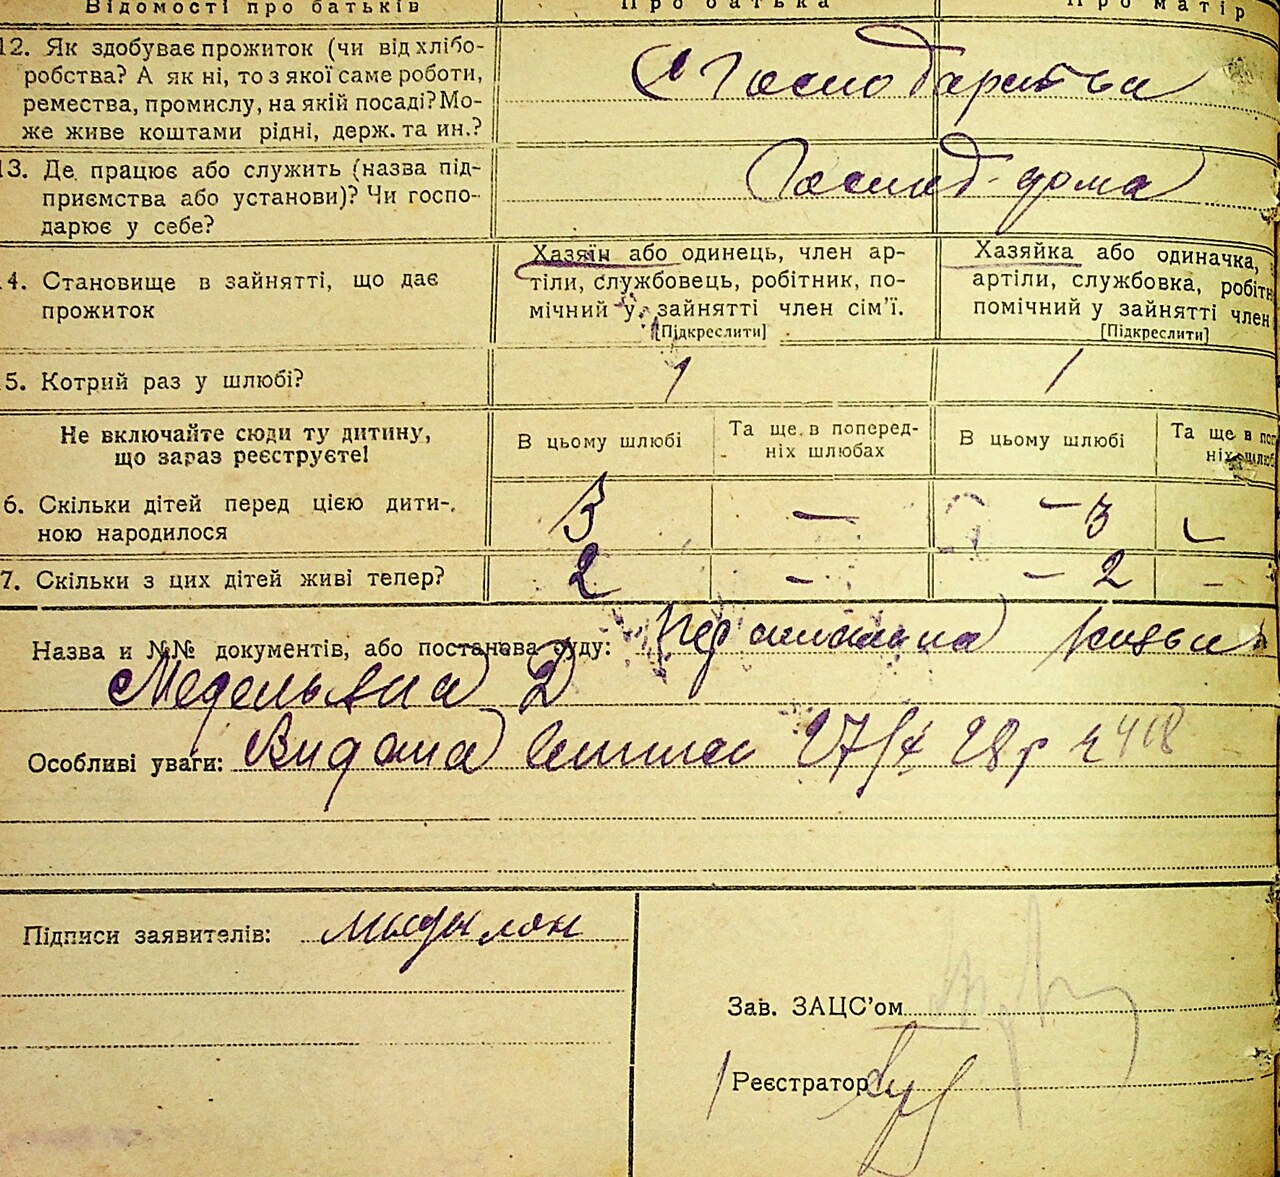 Відомості про батьків Про батька Про матір
12. Як здобуває прожиток (чи від хлібо-
робства? А як ні, то з якої саме роботи,
ремества, промислу, на якій посаді? Мо-
же живе коштами рідні, держ. та ин.?
13. Де працює або служить (назва під-
приємства або установи)? Чи госпо-
дарює у себе?
дома
4. Становище в зайнятті, що дає
прожиток
Хазяїн або одинець, член ар-
тіли, службовець, робітник, по-
мічний у зайнятті член сім'ї.
[Підкреслити]
Хазяйка або одиначка,
артіли, службовка, робітн
помічний у зайнятті член
[Підкреслити]
5. Котрий раз у шлюбі? 1 1
Не включайте сюди ту дитину,
що зараз реєструєте!
В цьому шлюбі
Та ще в поперед-
ніх шлюбах
В цьому шлюбі
Та ще в поп
ніх шлюб
6. Скільки дітей перед цією дити-
ною народилося
3 — — 3 —
7. Скільки з цих дітей живі тепер? 2 – – 2 –
Назва и №№ документів, або постанова суду:
Д
Особливі уваги: Видана 28 р 418
Підписи заявителів:
Зав. ЗАЦС'ом
Реєстратор